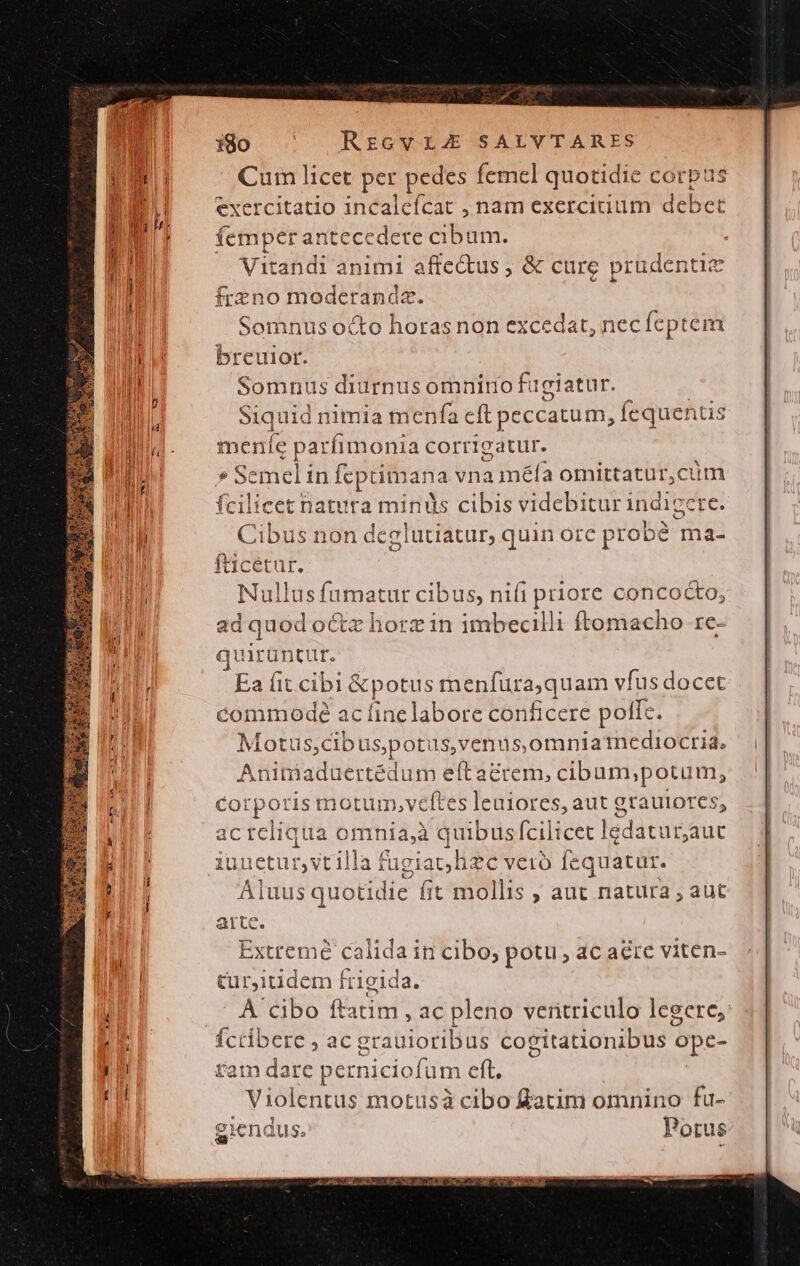 180 REGVLÆ SALVTARES
Cum licet per pedes ſemel quotidie corpus
exercitatio incaleſcat , nam exercitium debet
ſemper antecedere cibum.
Vitandi animi affectus , & curę prudentiæ
fræno moderandæ.
Somnus octo horas non excedat, nec ſeptem
breuior.
Somnus diurnus omnino fugiatur.
Siquid nimia menſa eſt peccatum, ſequentis
menſę parſimonia corrigatur.
* Semel in ſeptimana vna méſa omittatur,cùm
ſcilicet natura minùs cibis videbitur indigere.
Cibus non deglutiatur, quin ore probè ma-
ſticetur.
Nullus ſumatur cibus, niſi priore concocto,
ad quod octæ horæ in imbecilli ſtomacho re-
quiruntur.
Ea ſit cibi & potus menſura,quam vſus docet
commodè ac ſine labore conficere poſſe.
Motus,cibus,potus,venus,omnia mediocria.
Animaduertẽdum eſt aërem, cibum,potum,
corporis motum,veſtes leuiores, aut grauiores,
ac reliqua omnia,à quibus ſcilicet lędatur,aut
iuuetur,vt illa fugiat,hæc verò ſequatur.
Aluus quotidie ſit mollis , aut natura , aut
arte.
Extremè calida in cibo, potu , ac aëre viten-
tur,itidem frigida.
A cibo ſtatim , ac pleno ventriculo legere,
ſcribere , ac grauioribus cogitationibus ope-
ram dare pernicioſum eſt.
Violentus motus à cibo ſtatim omnino fu-
giendus. Potus